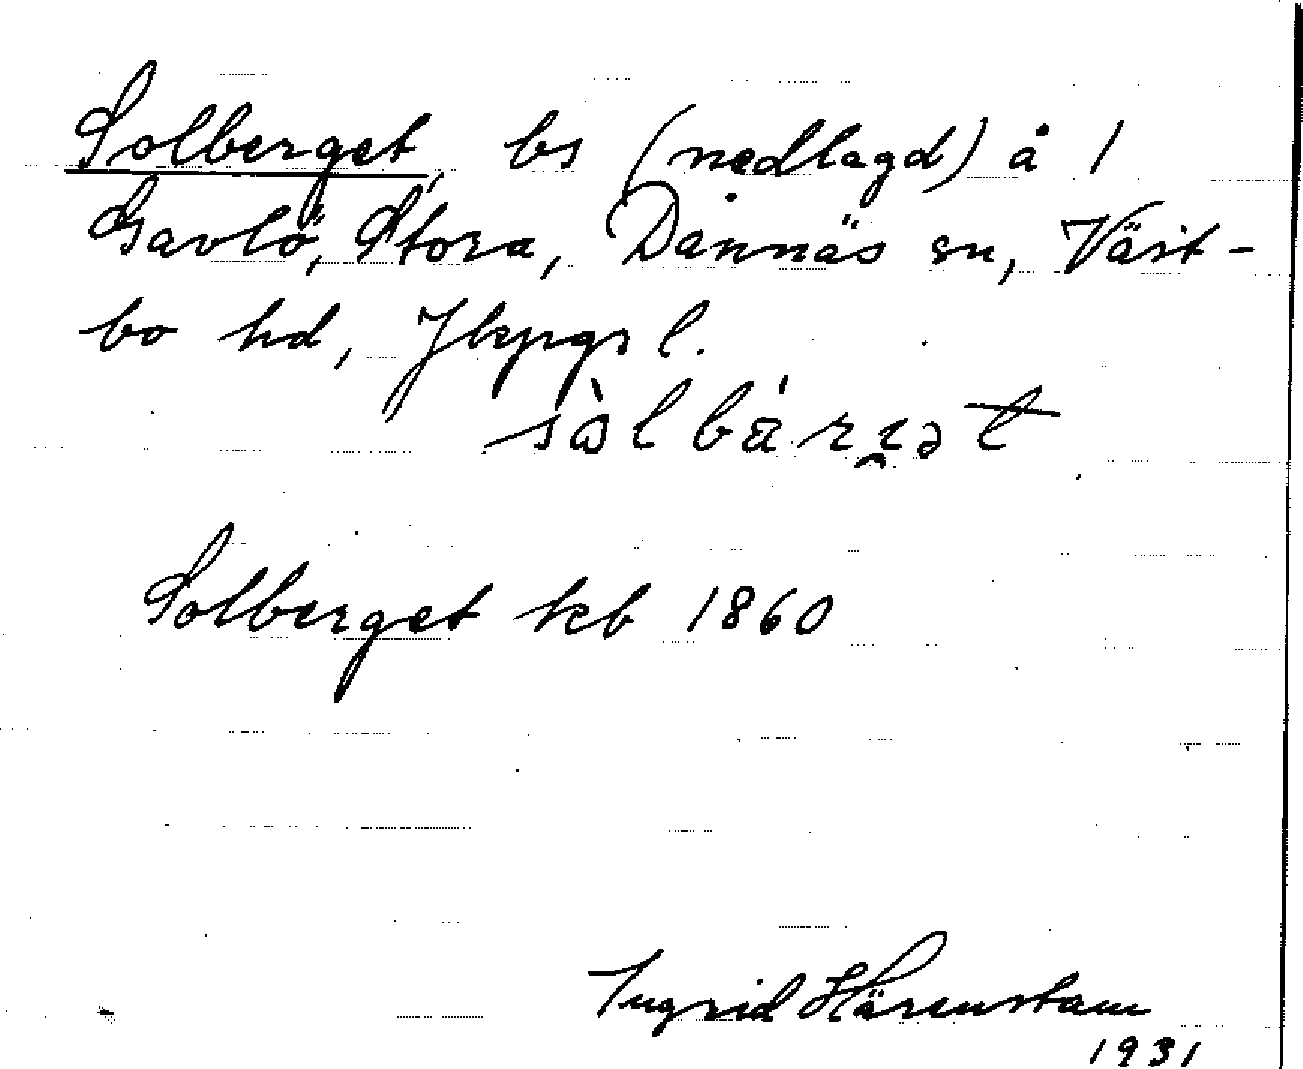 Solberget, bs (nedlagd) å 1
Gavlö, Stora, Dannäs sn, Väst-
bo hd, Jkpgs l.
Solberget kb 1860
Ingrid Härenstam
1931